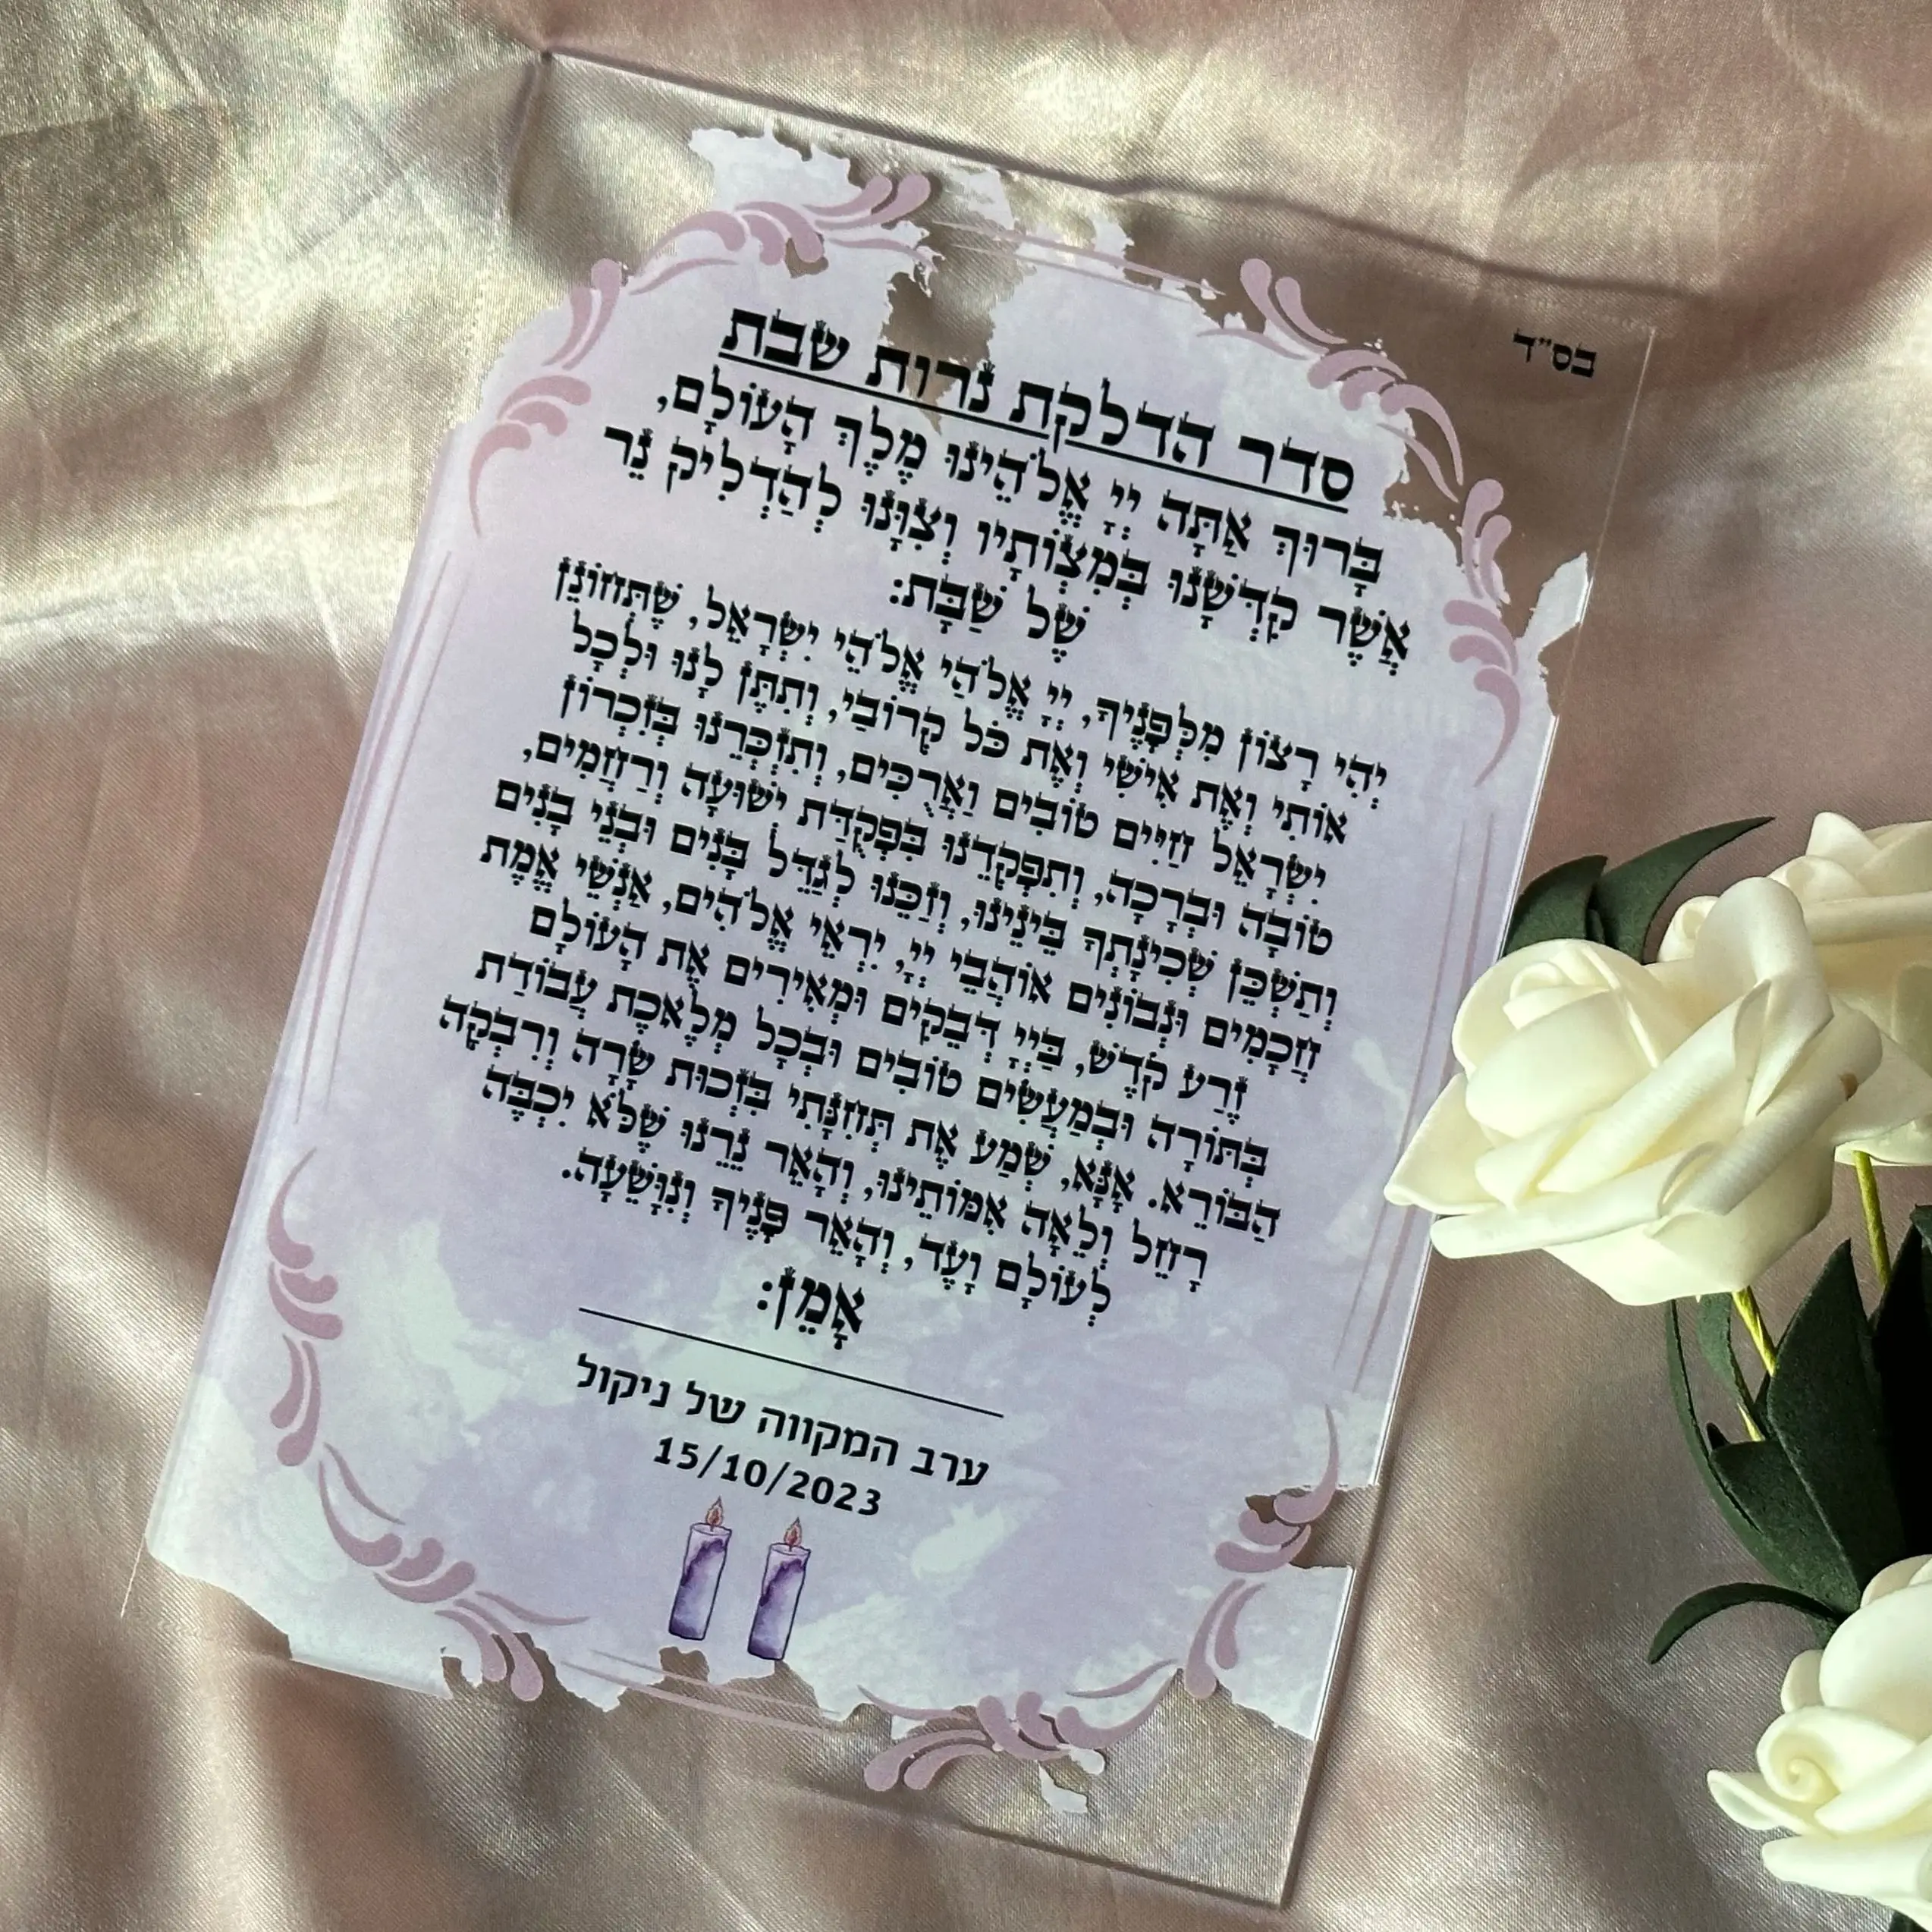 בס"ד
סדר הדלקת נרות שבת
בָּרוּךְ אַתָּה יְיָ אֱלֹהֵינוּ מֶלֶךְ הָעוֹלָם,
אֲשֶׁר קִדְּשָׁנוּ בְּמִצְוֹתָיו וְצִוָּנוּ לְהַדְלִיק נֵר
שֶׁל שַׁבָּת:
יְהִי רָצוֹן מִלְּפָנֶיךָ, יְיָ אֱלֹהַי אֱלֹהֵי יִשְׂרָאֵל, שֶׁתְּחוֹנֵן
אוֹתִי וְאֶת אִישִׁי וְאֶת כֹּל קְרוֹבַי, וְתִתֶּן לָנוּ וּלְכָל
יִשְׂרָאֵל חַיִּים טוֹבִים וַאֲרֻכִּים, וְתִזְכְּרֵנוּ בְּזִכְרוֹן
טוֹבָה וּבְרָכָה, וְתִפְקְדֵנוּ בִּפְקֻדַּת יְשׁוּעָה וְרַחֲמִים,
וְתַשְׁכֵּן שְׁכִינָתְךָ בֵּינֵינוּ, וְזַכֵּנוּ לְגַדֵּל בָּנִים וּבְנֵי בָנִים
חֲכָמִים וּנְבוֹנִים אוֹהֲבֵי יְיָ, יִרְאֵי אֱלֹהִים, אַנְשֵׁי אֱמֶת
זֶרַע קֹדֶשׁ, בַּיְיָ דְּבֵקִים וּמְאִירִים אֶת הָעוֹלָם
בְּתּוֹרָה וּבְמַעֲשִׂים טוֹבִים וּבְכָל מְלֶאכֶת עֲבוֹדַת
הַבּוֹרֵא. אָנָּא, שְׁמַע אֶת תְּחִנָּתִי בִּזְכוּת שָׂרָה וְרִבְקָה
רָחֵל וְלֵאָה אִמּוֹתֵינוּ, וְהָאֵר נֵרֵנוּ שֶׁלֹּא יִכְבֶּה
לְעוֹלָם וָעֶד, וְהָאֵר פָּנֶיךָ וְנִוָּשֵׁעָה.
אָמֵן:
ערב המקווה של ניקול
15/10/2023